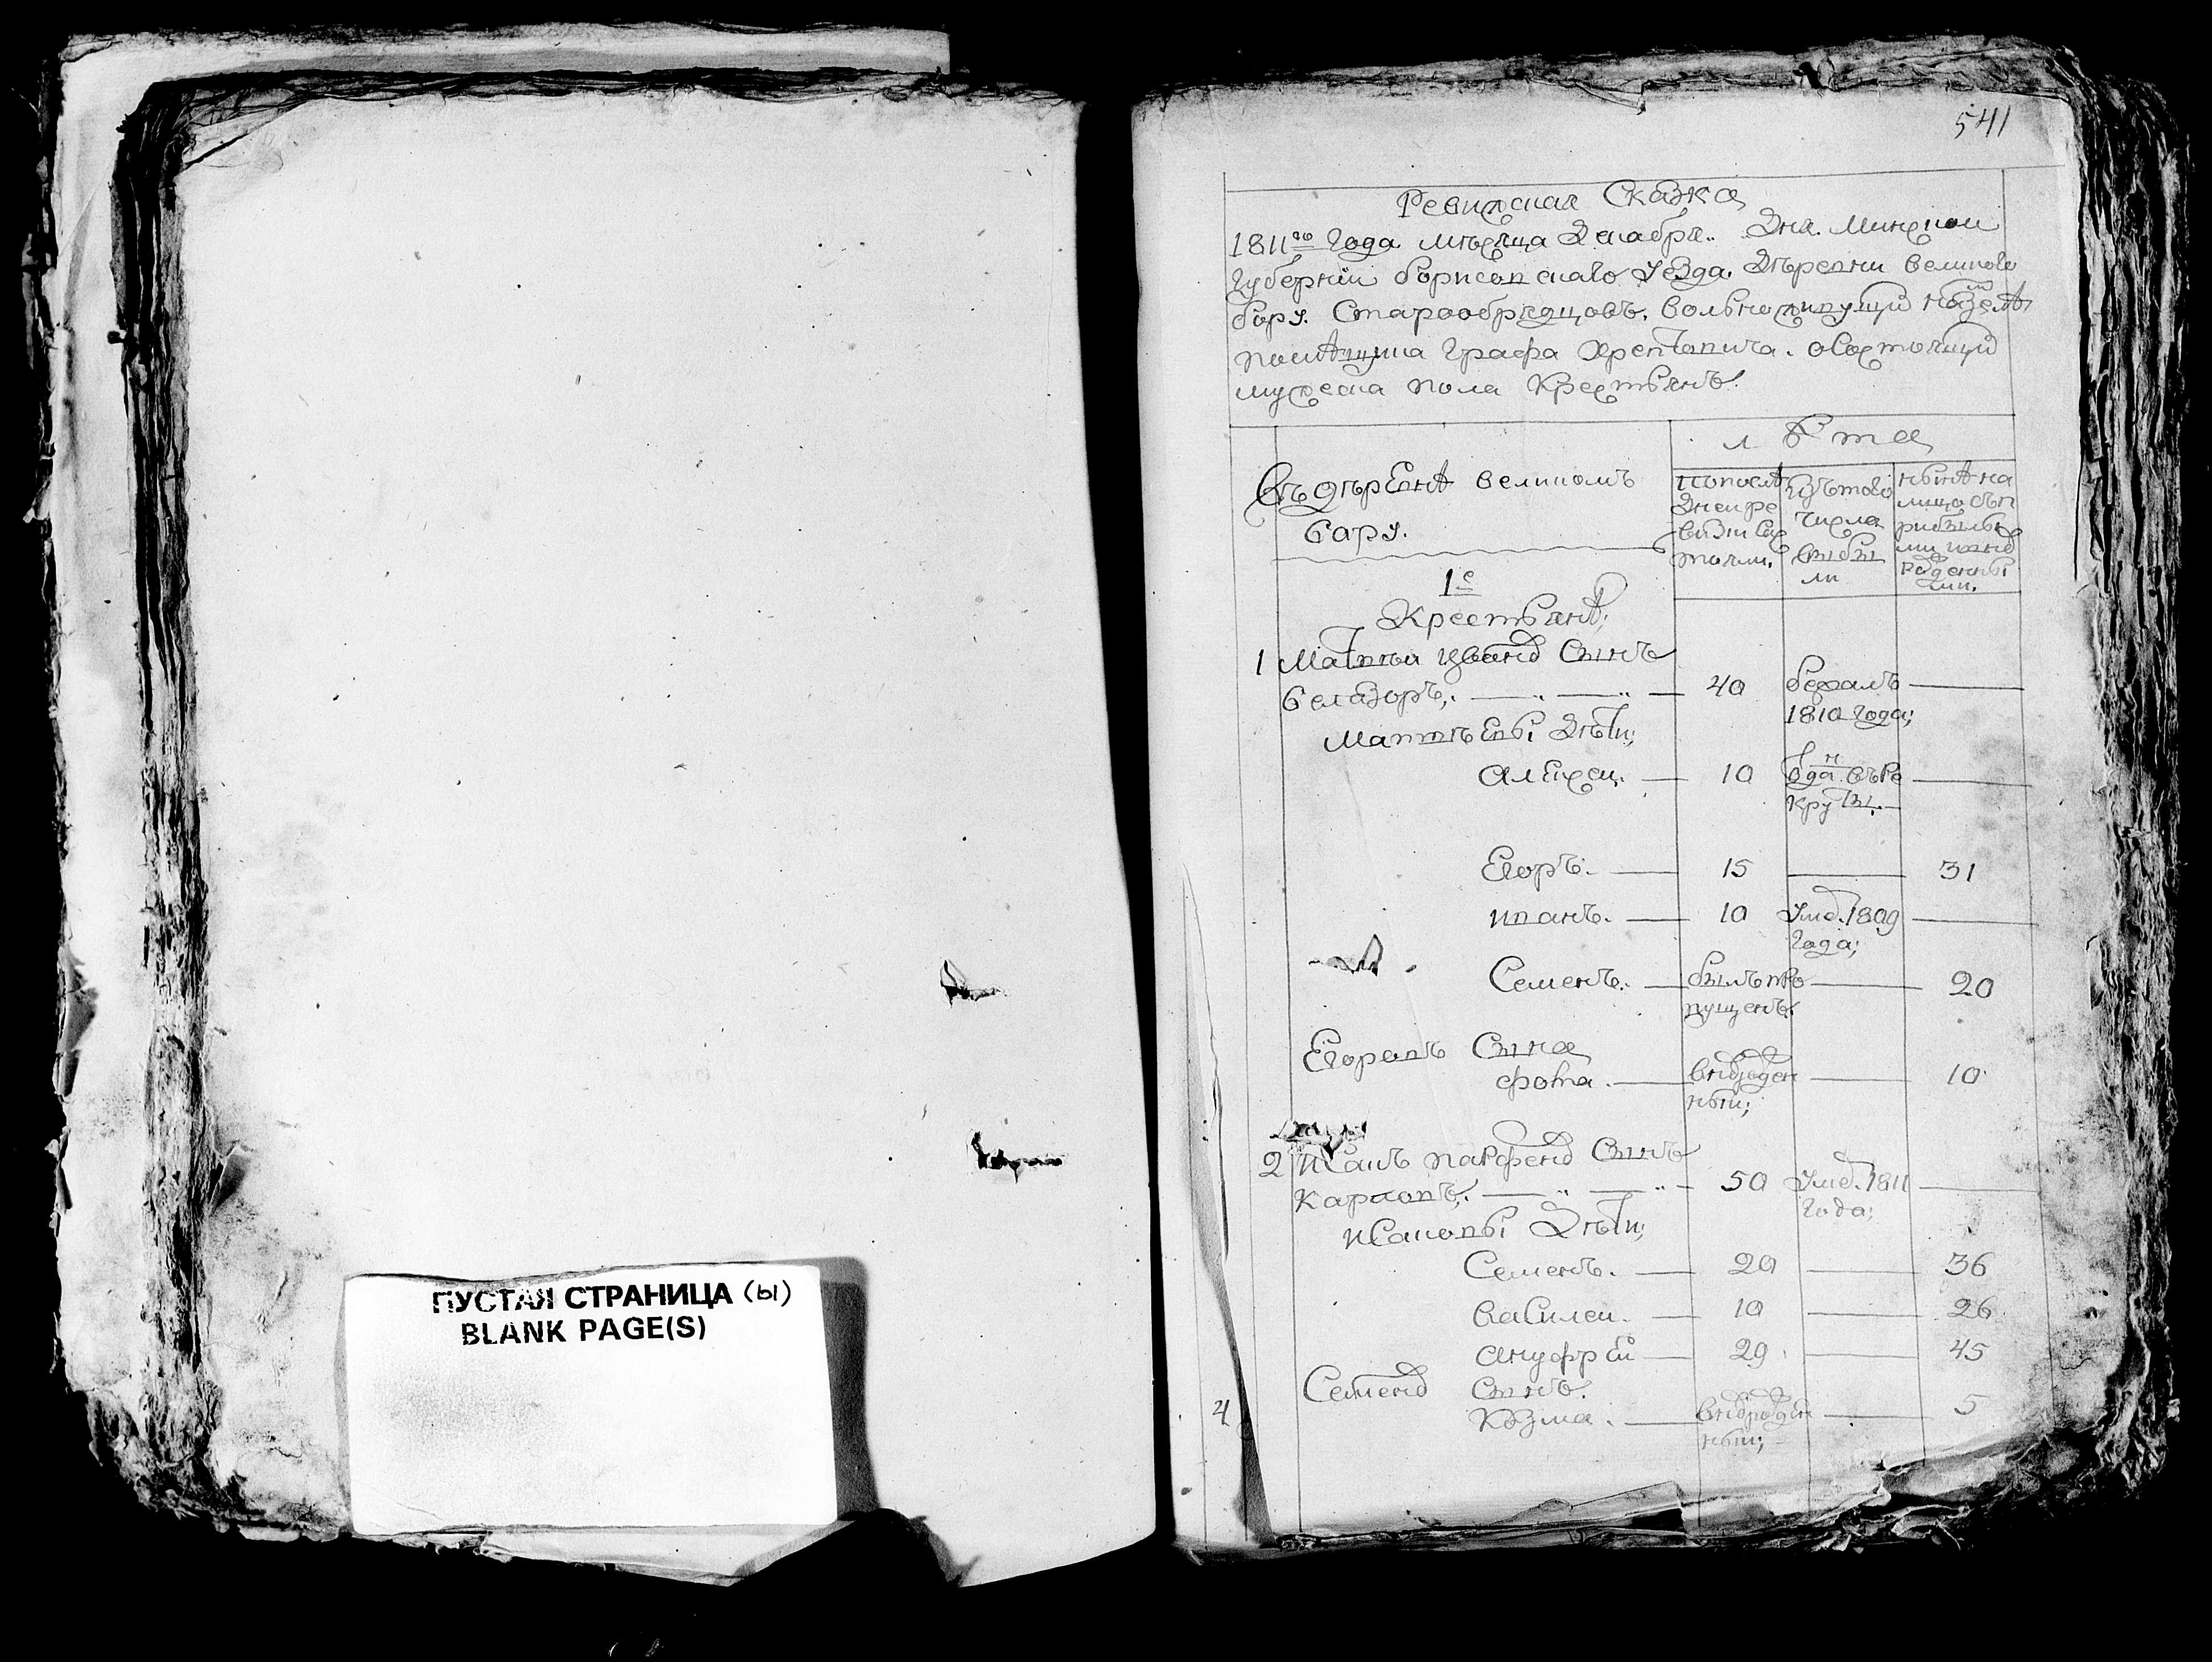 ПУСТАЯ СТРАНИЦА (ы)
BLANK PAGE(S)
541
Ревизская Сказка
1811го Года мѣсяца Декабря .. Дня. Минской
Губернїи борисовскаго уезда. Дѣревни великого
бору. Старообрядцовъ. вольноживущих на земли
помѣщика графа Хрептовича. о состоящих
мужеска пола Крестьянъ.
лѣта
Въ дѣревнѣ великомъ
бару.
попослѣ
дней ре
визии сос
тояли.
Изътого
числа
выбы
ли
нынѣ на
лицо съп
рибылы
ми и внов
рожденны
ми.
1е
Крестьянѣ;
1 Матвѣи Иванов Сынъ
белазоръ; 40 бежалъ
1810 года;
Матвѣевы Дѣти;
алексеи. 10 отдан въре
круты.
Егоръ. 15 31
иванъ. 10 умер. 1809
года;
Семенъ. былъ про 20
пущенъ.
Егоравъ Сына
фома. вноврожден 10
ный;
2 Исакъ парфенов Сынъ
карповъ; 50 умер. 1811
года;
Исаковы Дѣти;
Семенъ. 20 36
василеи. 10 26
ануфреи 29 45
Семенов Сынъ.
козма. вноврожден 5
ный;
4